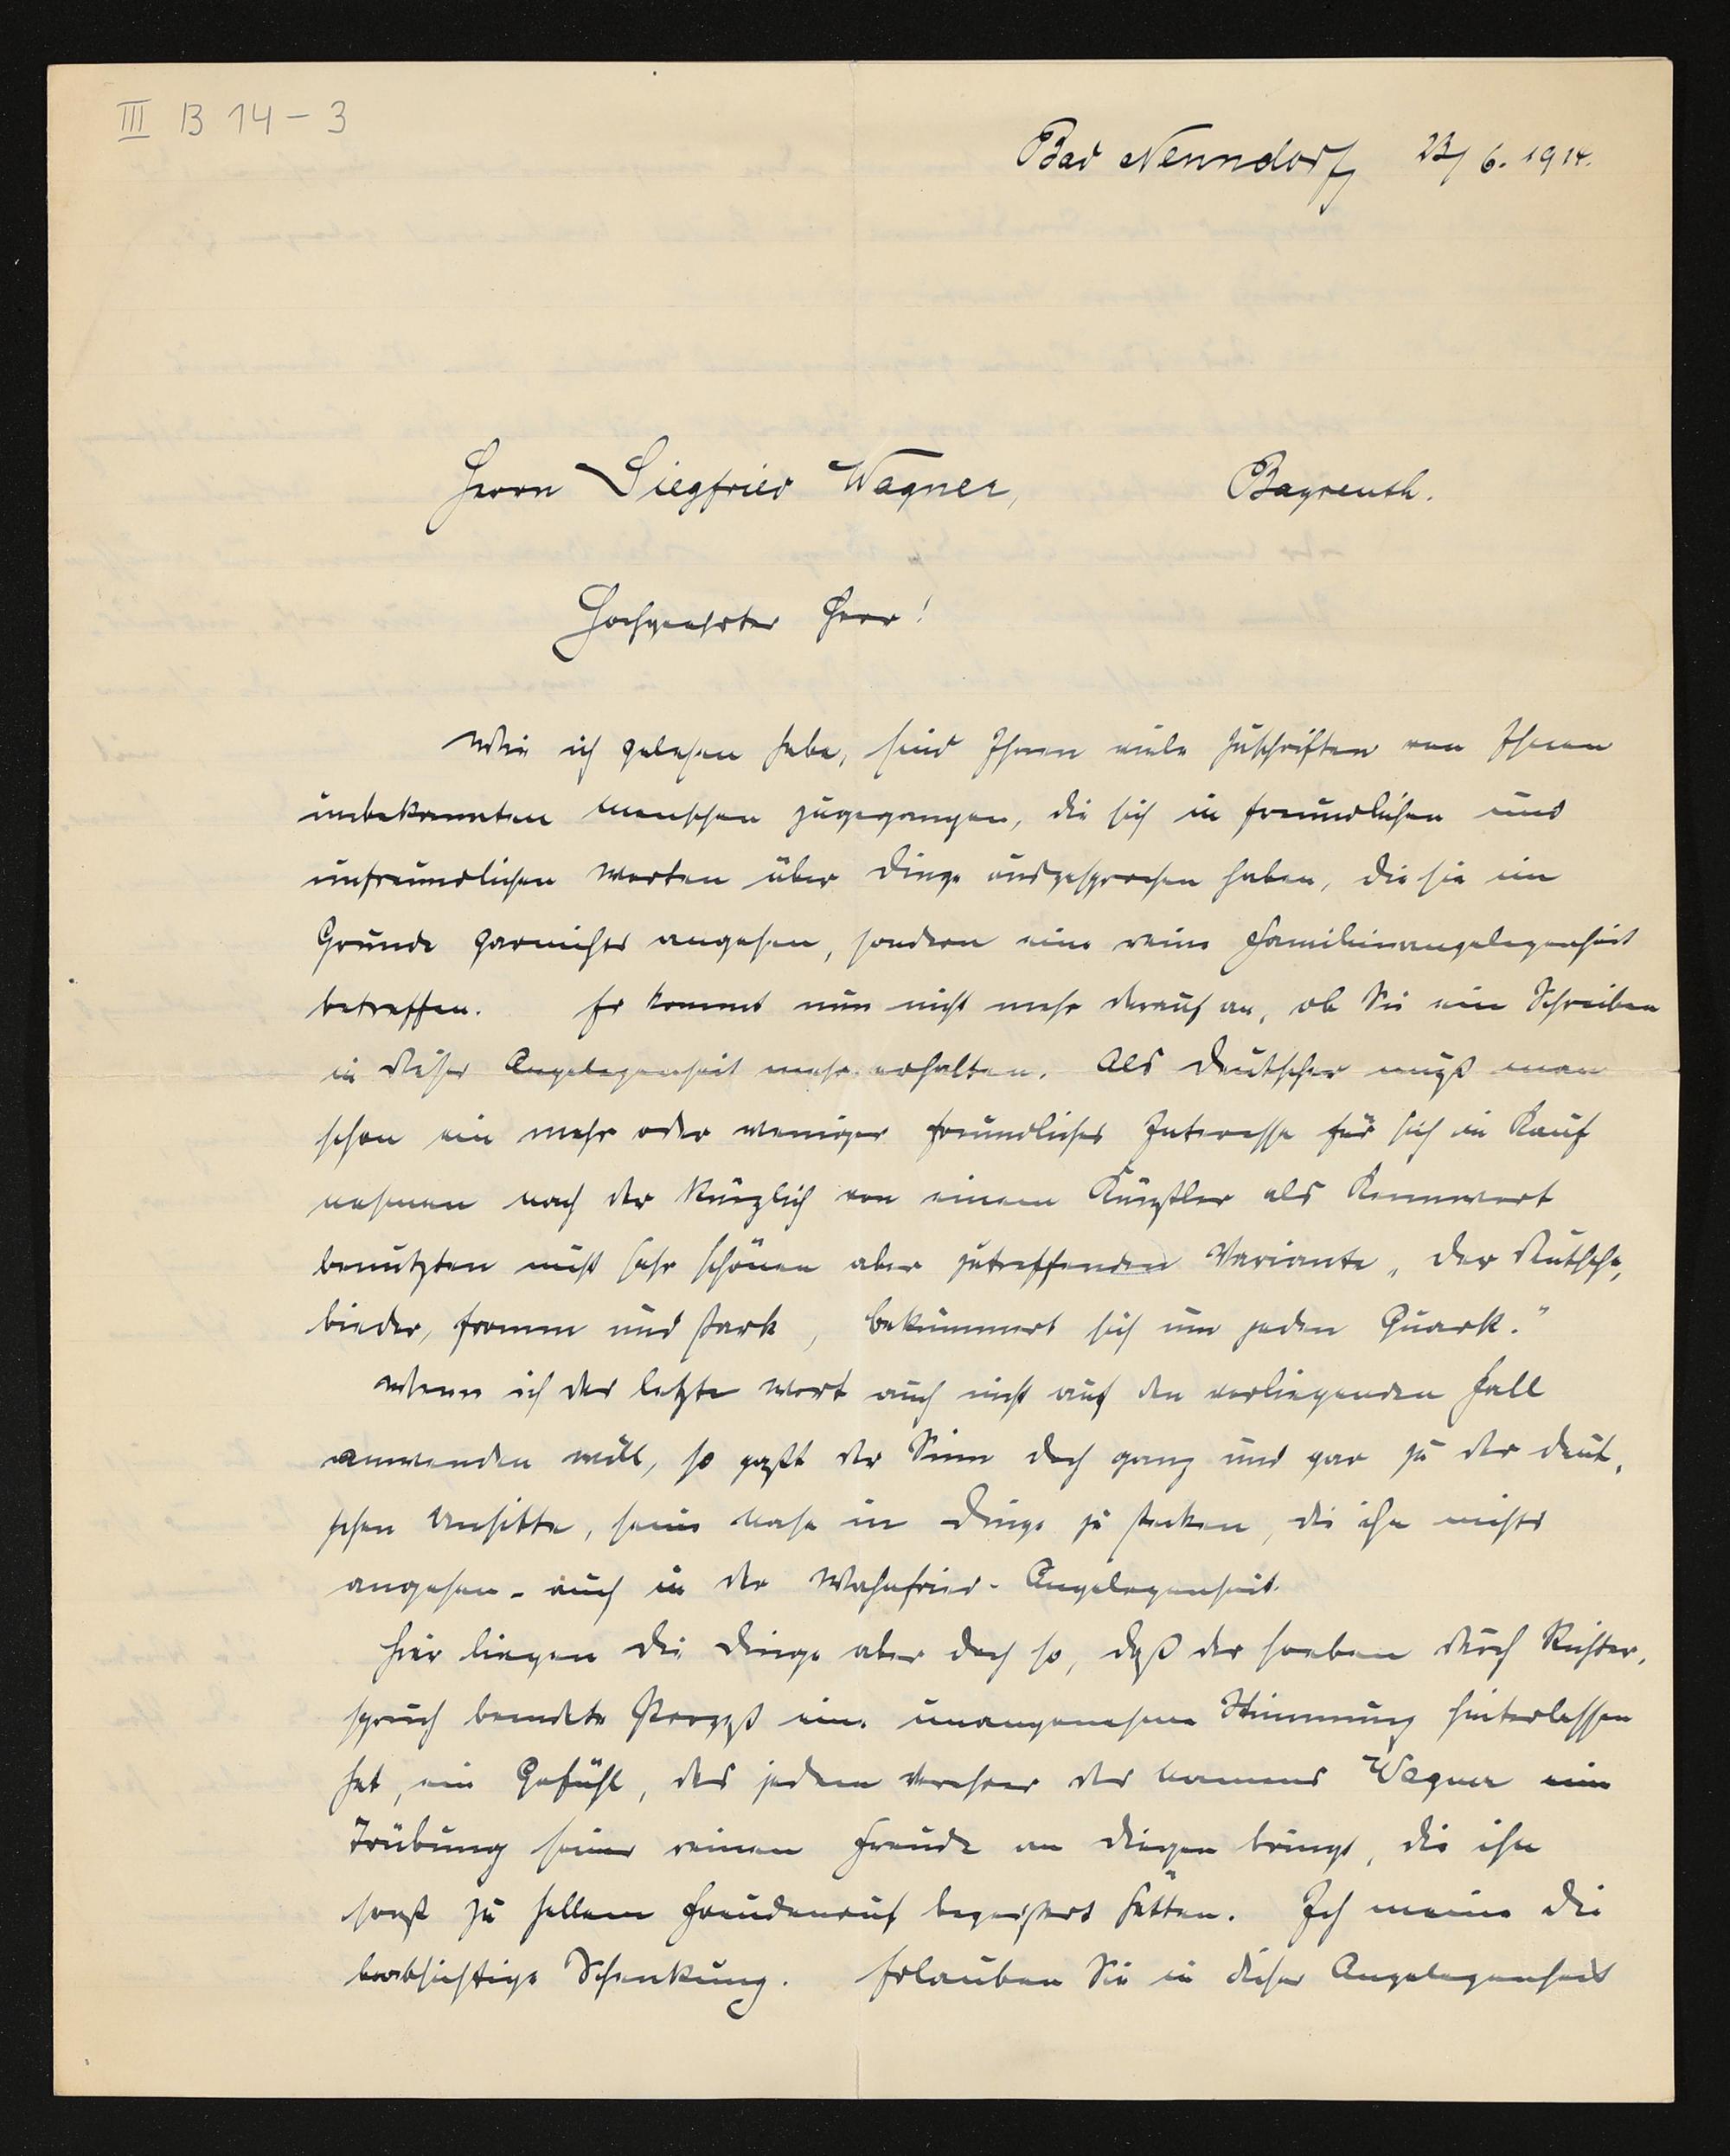 III B 14 - 3
Bad Nenndorf 23/6. 1914.
Herrn Siegfried Wagner, Bayreuth.
Hochgeehrter Herr!
Wie ich gelesen habe, sind Ihnen viele Zuschriften von Ihnen
unbekannten Menschen zugegangen, die sich in freundlichen und
unfreundlichen Worten über Dinge ausgesprochen haben, die sie im
Grunde garnichts angehen, sondern eine reine Familienangelegenheit
betreffen. Es kommt nun nicht mehr darauf an, ob Sie ein Schreiben
in dieser Angelegenheit mehr erhalten. Als Deutscher muß man
schon ein mehr oder weniger freundliches Interesse für sich in Kauf
nehmen nach der kürzlich von einem Künstler als Kennwort
benutzten nicht sehr schönen aber zutreffenden Variante „Der Deutsche,
bieder, fromm und stark, bekümmert sich um jeden Quark."
Wenn ich das letzte Wort auch nicht auf den vorliegenden Fall
anwenden will, so paßt der Sinn doch ganz und gar zu der deut-
schen Unsitte, seine Nase in Dinge zu stecken, die ihn nichts
angehen - auch in der Wahnfried-Angelegenheit.
Hier liegen die Dinge aber doch so, daß der soeben durch Richter-
spruch beendete Prozeß eine unangenehme Stimmung hinterlassen
hat, ein Gefühl, das jedem Verehrer des Namens Wagner eine
Trübung seiner reinen Freude an Dingen bringt, die ihn
sonst zu hellem Freudenruf begeistert hätten. Ich meine die
beabsichtige Schenkung. Erlauben Sie in dieser Angelegenheit